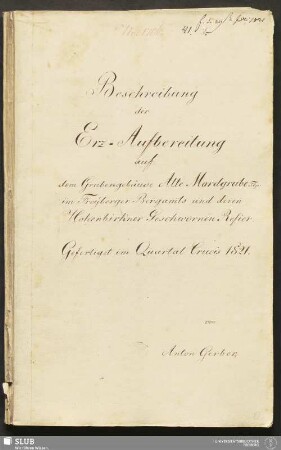 41.
Beschreibung
der
Erz-Aufbereitung
auf
dem Grubengebäude Alte Mordgrube
im Freyberger Bergamts und deren
Hohenbirkner Geschwornen Refier.
Gefertigt im Quartal Crucis 1821.
von
Anton Gerber
SLUB
Wir führen Wissen.